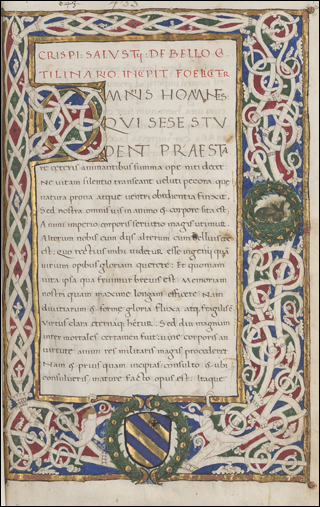 CRISPI SALVSTII DE BELLO C
TILINARIO. INCIPIT FOELICITER
OMNIS HOMINES
QVI SESE STV
DENT PRAESTA
re ceteris animantibus summa ope niti decet
Ne vitam silentio transeant veluti pecora: que
natura prona atque ventri obedientia finxit.
Sed nostra omnis vis in animo & corpore sita est.
Animi imperio: corporis servitio magis utimur.
Alterum nobis cum diis: alterum cum belluis
est. Quo rectius mihi videtur esse ingenii quã
virium opibus gloriam querere: Et quoniam
vita ipsa qua fruimur brevis est: Memoriam
nostri quam maxime longam efficere. Nam
divitiarum & forme gloria fluxa atq; fragilis
Virtus clara eternaq; hẽtur. Sed diu magnum
inter mortales certamen fuit: vine corporis an
virtute animi res militaris magis procederet.
Nam & prius quam incipias consulto: & ubi
consulueris mature facto opus est. Itaque